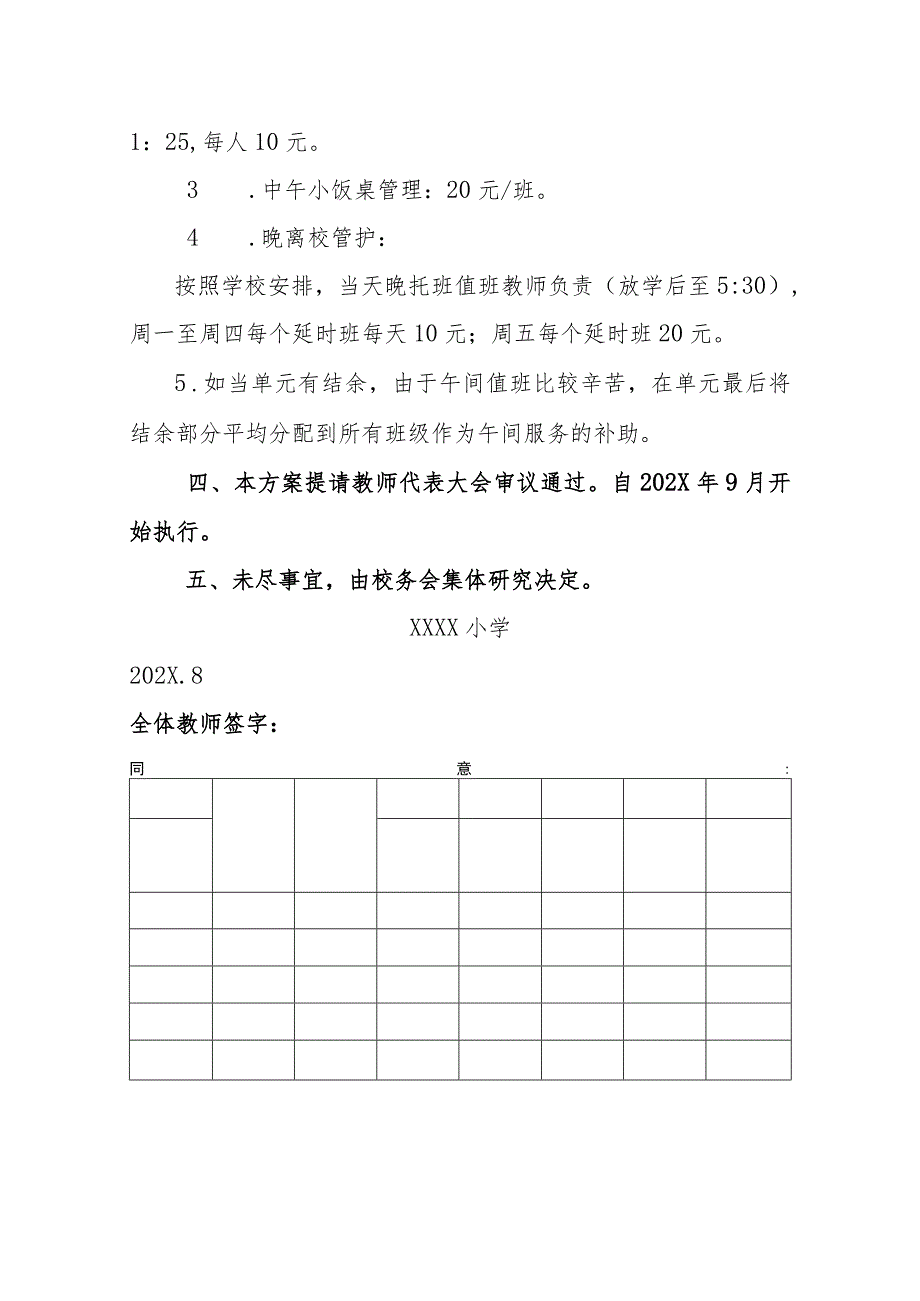 1：25,每人10元。
3 .中午小饭桌管理：20元/班。
4 .晚离校管护：
按照学校安排，当天晚托班值班教师负责（放学后至5:30），
周一至周四每个延时班每天10元；周五每个延时班20元。
5.如当单元有结余，由于午间值班比较辛苦，在单元最后将
结余部分平均分配到所有班级作为午间服务的补助。
四、本方案提请教师代表大会审议通过。自202X年9月开
始执行。
五、未尽事宜，由校务会集体研究决定。
XXXX小学
202X.8
全体教师签字：
同 意 :